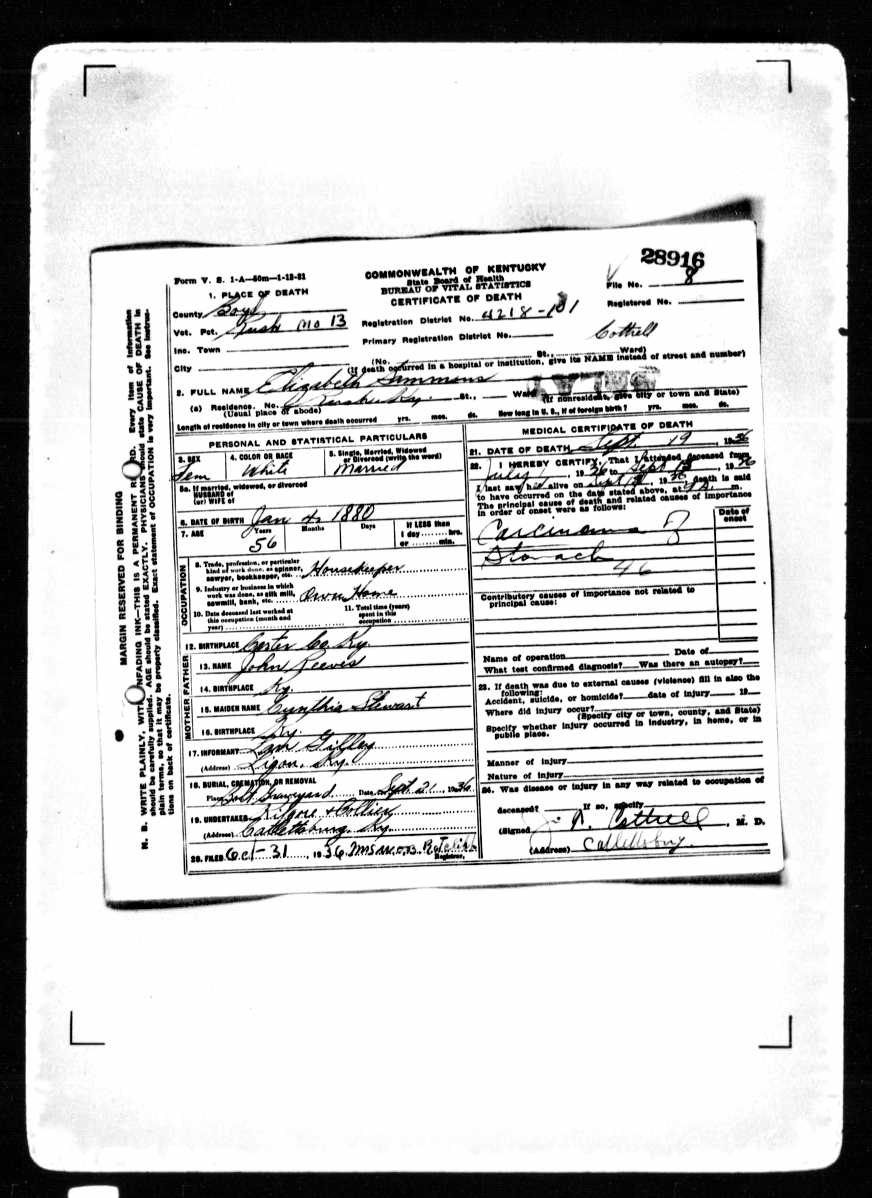 28916
Form V. S. 1-A—50m—1-12-31
COMMONWEALTH OF KENTUCKY
State Board of Health
BUREAU OF VITAL STATISTICS
CERTIFICATE OF DEATH
File No. 8
Registered No.
1. PLACE OF DEATH
County Boyd
Vot. Pct. Rush No 13
Registration District No. 4218-101
Inc. Town
Primary Registration District No.
Cottrell
City (No. St., Ward)
(If death occurred in a hospital or institution, give its NAME instead of street and number)
2. FULL NAME Elizabeth Simmons
(a) Residence. No. Rush Ky. St., Ward
(Usual place of abode) (If nonresident, give city or town and State)
Length of residence in city or town where death occurred yrs. mos. ds. How long in U. S., if of foreign birth? yrs. mos. ds.
PERSONAL AND STATISTICAL PARTICULARS
3. SEX Fem
4. COLOR OR RACE White
5. Single, Married, Widowed or Divorced (write the word) Married
5a. If married, widowed, or divorced
HUSBAND of
(or) WIFE of
6. DATE OF BIRTH Jan 4 1880
7. AGE Years 56 Months Days If LESS than
1 day hrs.
or min.
OCCUPATION
8. Trade, profession, or particular
kind of work done, as spinner,
sawyer, bookkeeper, etc. Housekeeper
9. Industry or business in which
work was done, as silk mill,
sawmill, bank, etc. Own Home
10. Date deceased last worked at
this occupation (month and
year)
11. Total time (years)
spent in this
occupation
12. BIRTHPLACE Carter Co Ky.
MOTHER FATHER
13. NAME John Reeves
14. BIRTHPLACE Ky.
15. MAIDEN NAME Cynthia Stewart
16. BIRTHPLACE Ky.
17. INFORMANT
(Address) Ky.
18. BURIAL, CREMATION, OR REMOVAL
Place Graveyard Date Sept 21 1936
19. UNDERTAKER Kilgore & Collier
(Address) Catlettsburg Ky.
20. FILED Oct-31, 1936 Mrs
Registrar.
MEDICAL CERTIFICATE OF DEATH
21. DATE OF DEATH Sept 19, 1936
22. I HEREBY CERTIFY, That I attended deceased from
July 1, 1936 to Sept 19, 1936
I last saw her alive on Sept 1936 death is said
to have occurred on the date stated above, at m.
The principal cause of death and related causes of importance
in order of onset were as follows:
Date of
onset
Carcinoma of
Stomach
46
Contributory causes of importance not related to
principal cause:
Name of operation Date of
What test confirmed diagnosis? Was there an autopsy?
23. If death was due to external causes (violence) fill in also the
following:
Accident, suicide, or homicide? date of injury 19
Where did injury occur?
(Specify city or town, county, and State)
Specify whether injury occurred in industry, in home, or in
public place.
Manner of injury
Nature of injury
24. Was disease or injury in any way related to occupation of
deceased? If so, specify
(Signed) Cottrell, M. D.
(Address) Catlettsburg.
MARGIN RESERVED FOR BINDING
N. B. WRITE PLAINLY, WITH UNFADING INK—THIS IS A PERMANENT RECORD. Every item of information
should be carefully supplied. AGE should be stated EXACTLY. PHYSICIANS should state CAUSE OF DEATH in
plain terms, so that it may be properly classified. Exact statement of OCCUPATION is very important. See instruc-
tions on back of certificate.